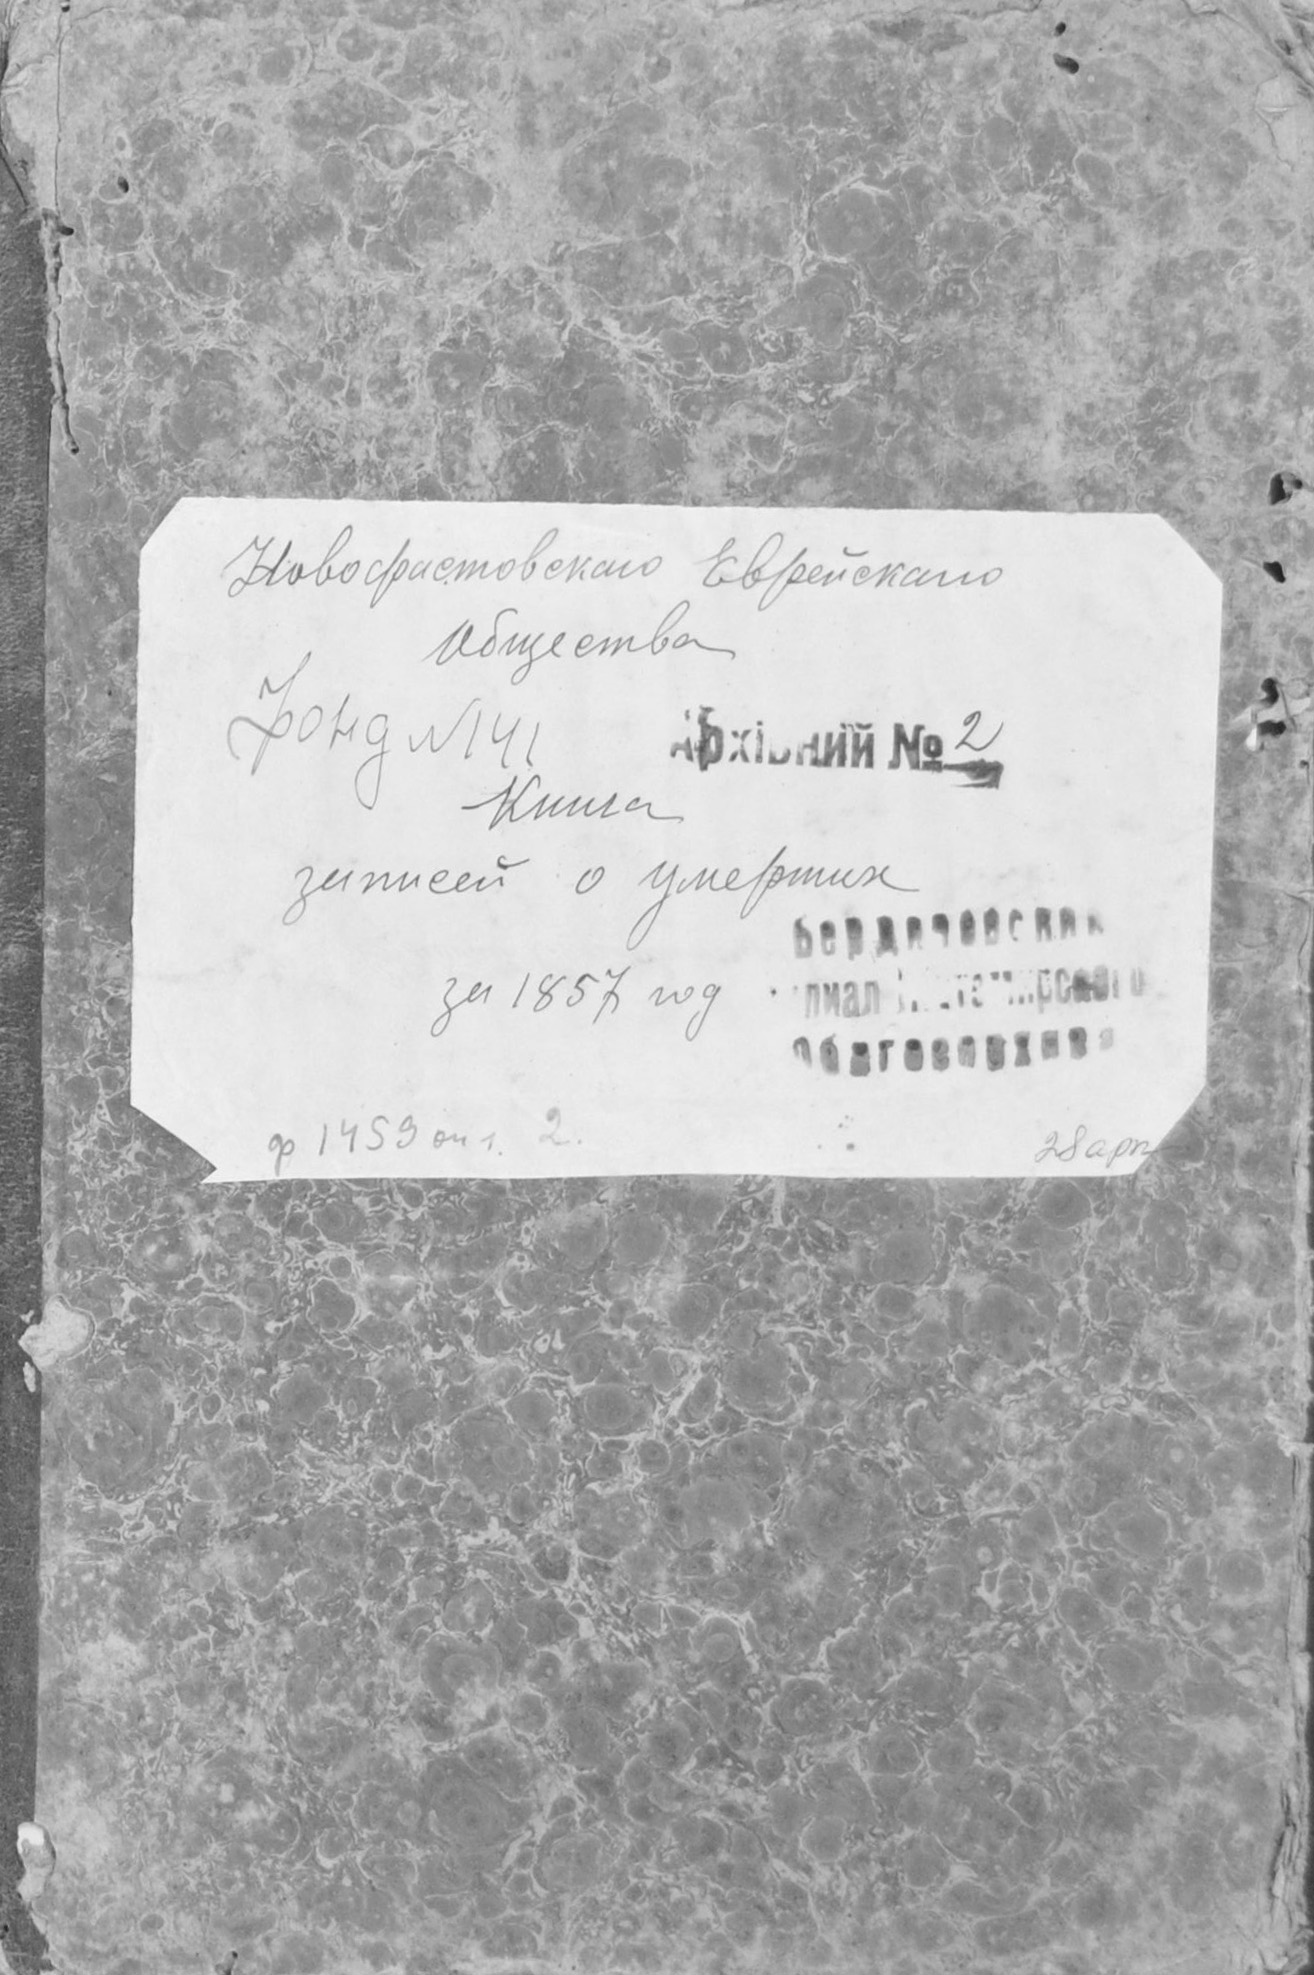 Новофастовскаго Еврейскаго
Общества
Фонд №141
Архівний № 2
Книга
записей о умерших
за 1857 год
Бердичевский
филиал Житомирского
Облгосархива
ф 1459 оп 1. 2.
28 арк